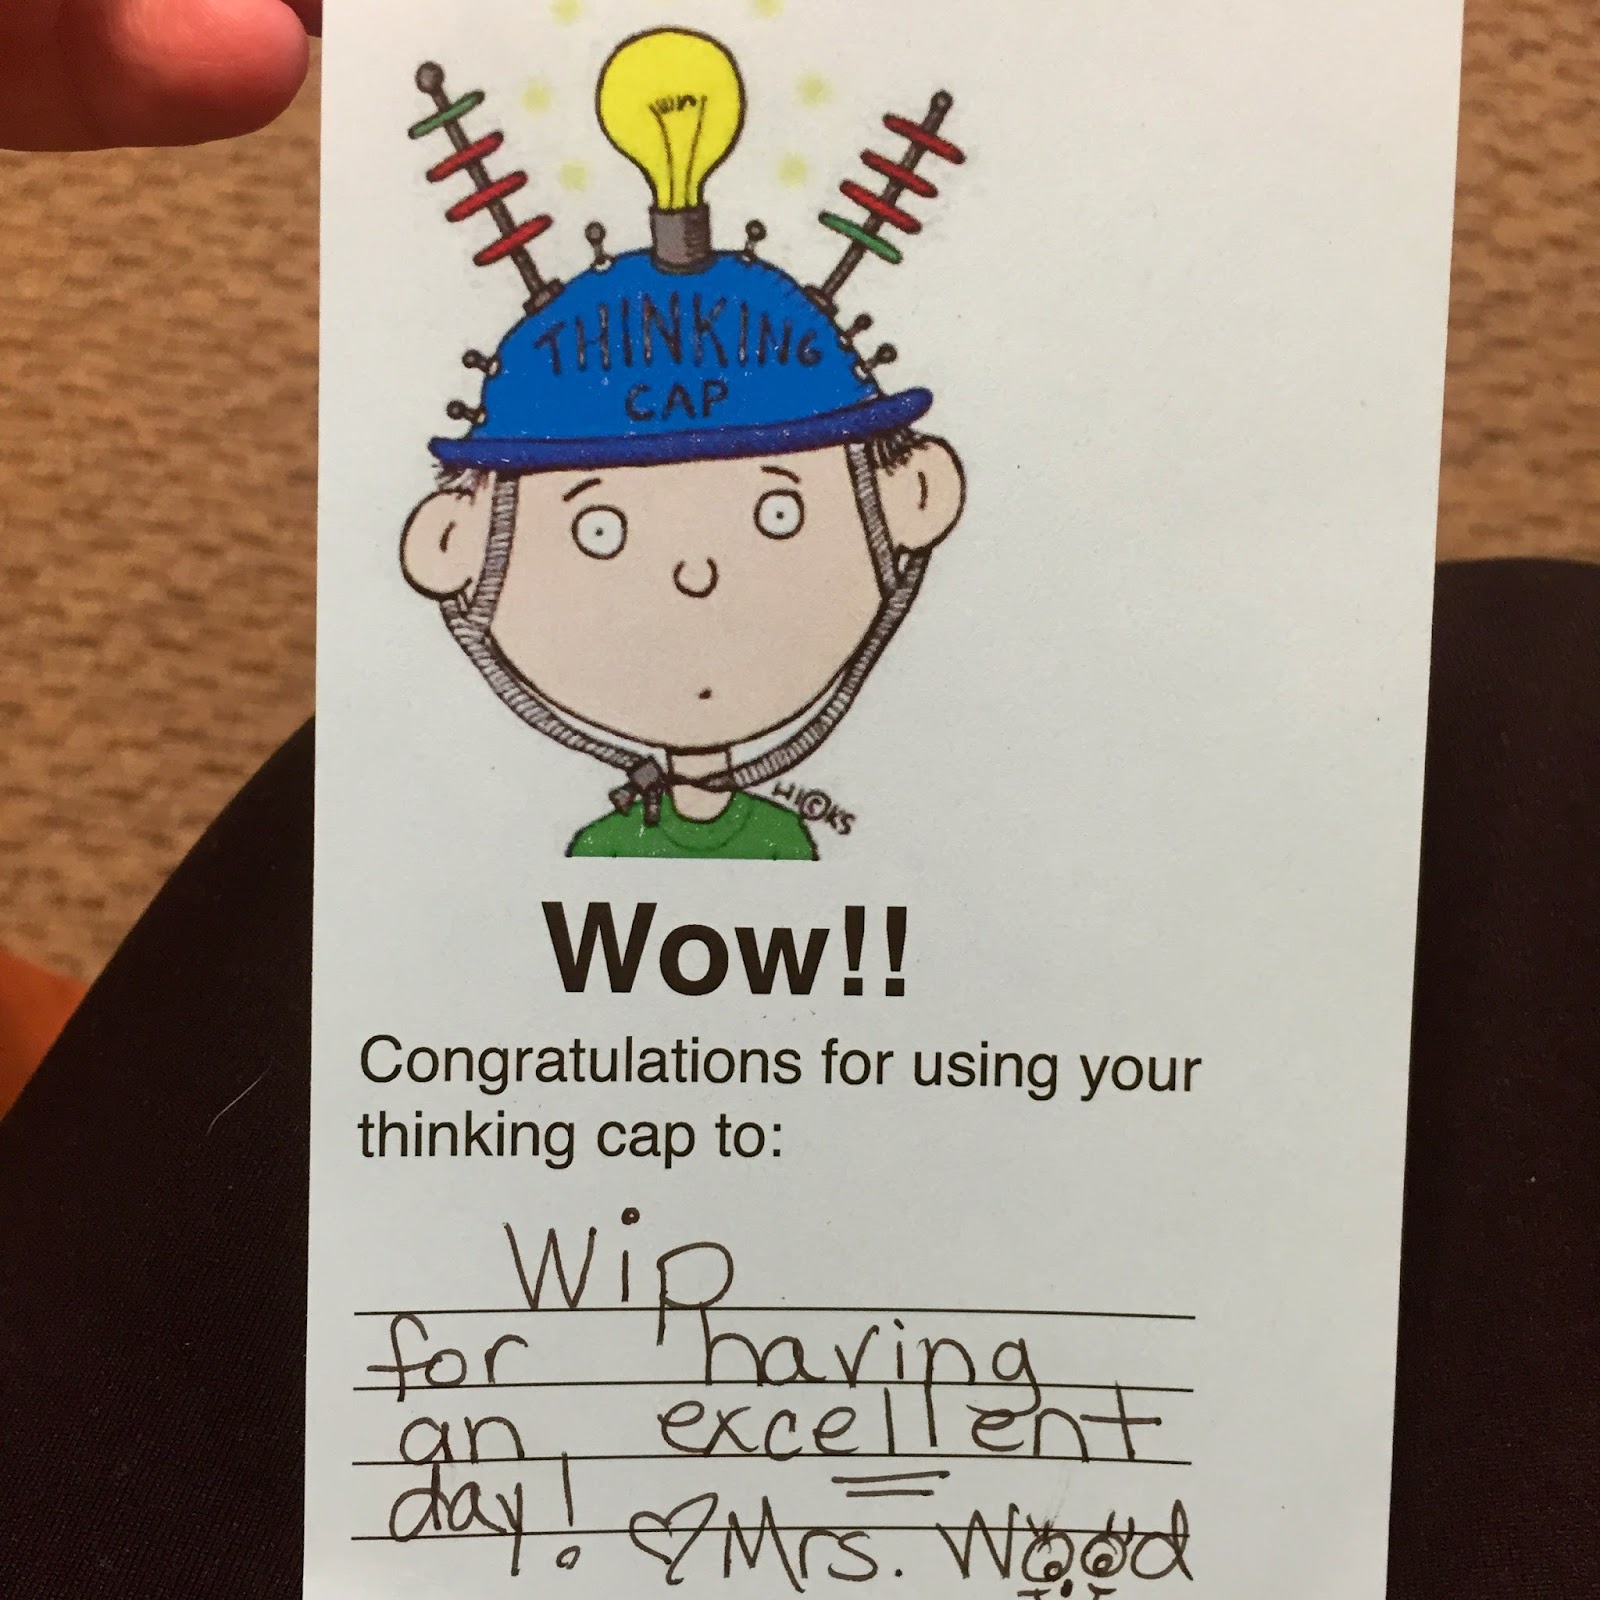 THINKING
CAP
HICKS
Wow!!
Congratulations for using your
thinking cap to:
Wip
for having
an excellent
day! ♡ Mrs. Wood